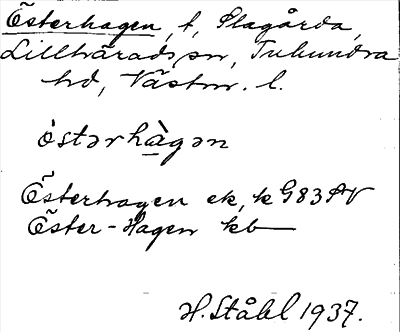 Österhagen, t, Slagårda,
Lillhärads sn, Tuhundra
hd, Västm. l.
östərhàgən
Österhagen ek, k G83 SV
Öster-Hagen kb
H. Ståhl 1937.